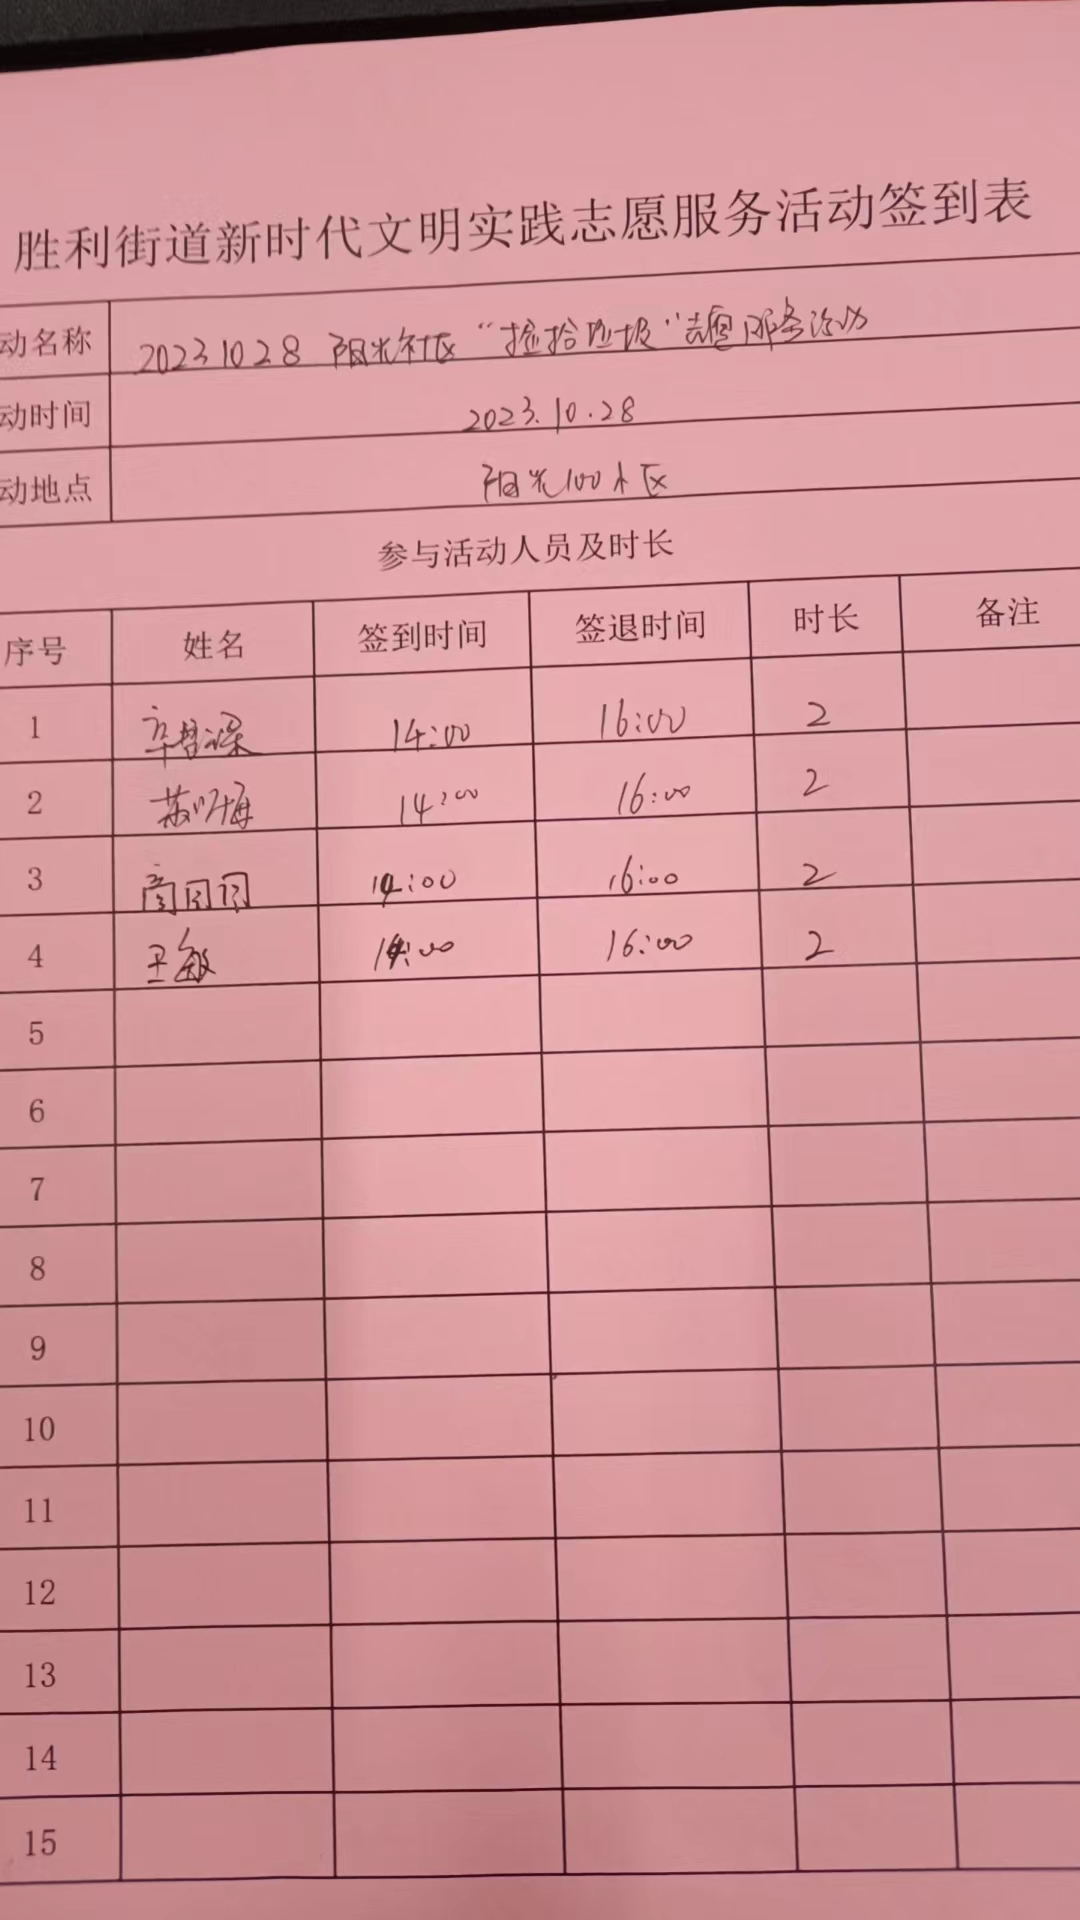 胜利街道新时代文明实践志愿服务活动签到表
动名称 20231028 阳光社区“捡拾垃圾”志愿服务活动
动时间 2023.10.28
动地点 阳光100小区
参与活动人员及时长
序号 姓名 签到时间 签退时间 时长 备注
1 14:00 16:00 2
2 14:00 16:00 2
3 14:00 16:00 2
4 王敏 14:00 16:00 2
5
6
7
8
9
10
11
12
13
14
15